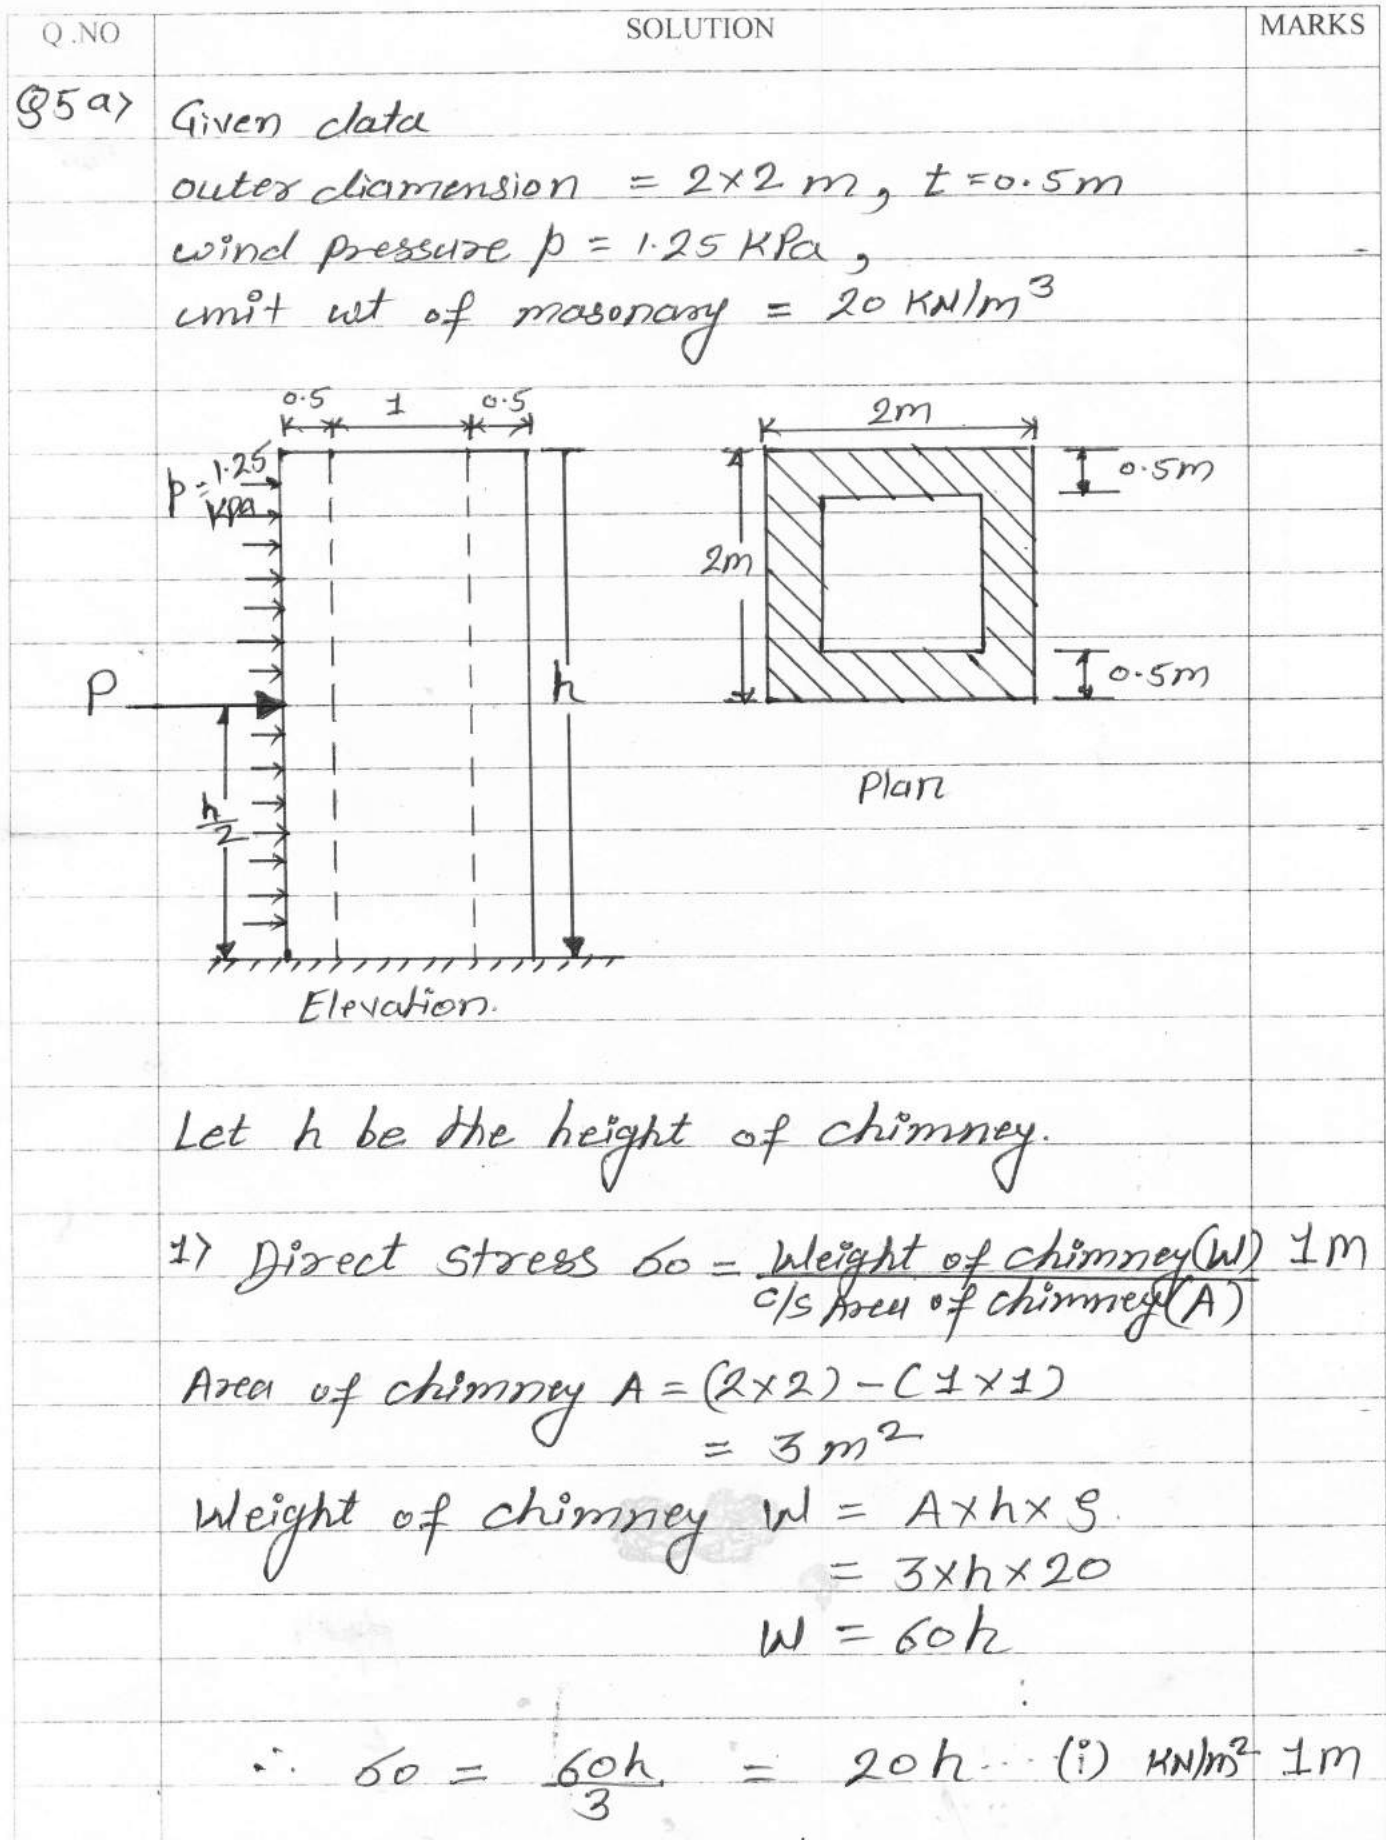 Q.NO SOLUTION MARKS
Q5 a) Given data
outer diamension = 2×2 m, t=0.5m
wind pressure p = 1.25 KPa,
unit wt of masonary = 20 KN/m³
0.5 1 0.5
2m
p=1.25
KPa
0.5m
2m
P
h
0.5m
h/2
Plan
Elevation.
Let h be the height of chimney.
1) Direct stress σ0 = Weight of chimney(W) 1M
c/s Area of chimney(A)
Area of chimney A = (2×2)-(1×1)
= 3 m²
Weight of chimney W = A×h×ρ
= 3×h×20
W = 60h
∴ σ0 = 60h/3 = 20h... (i) KN/m² 1M